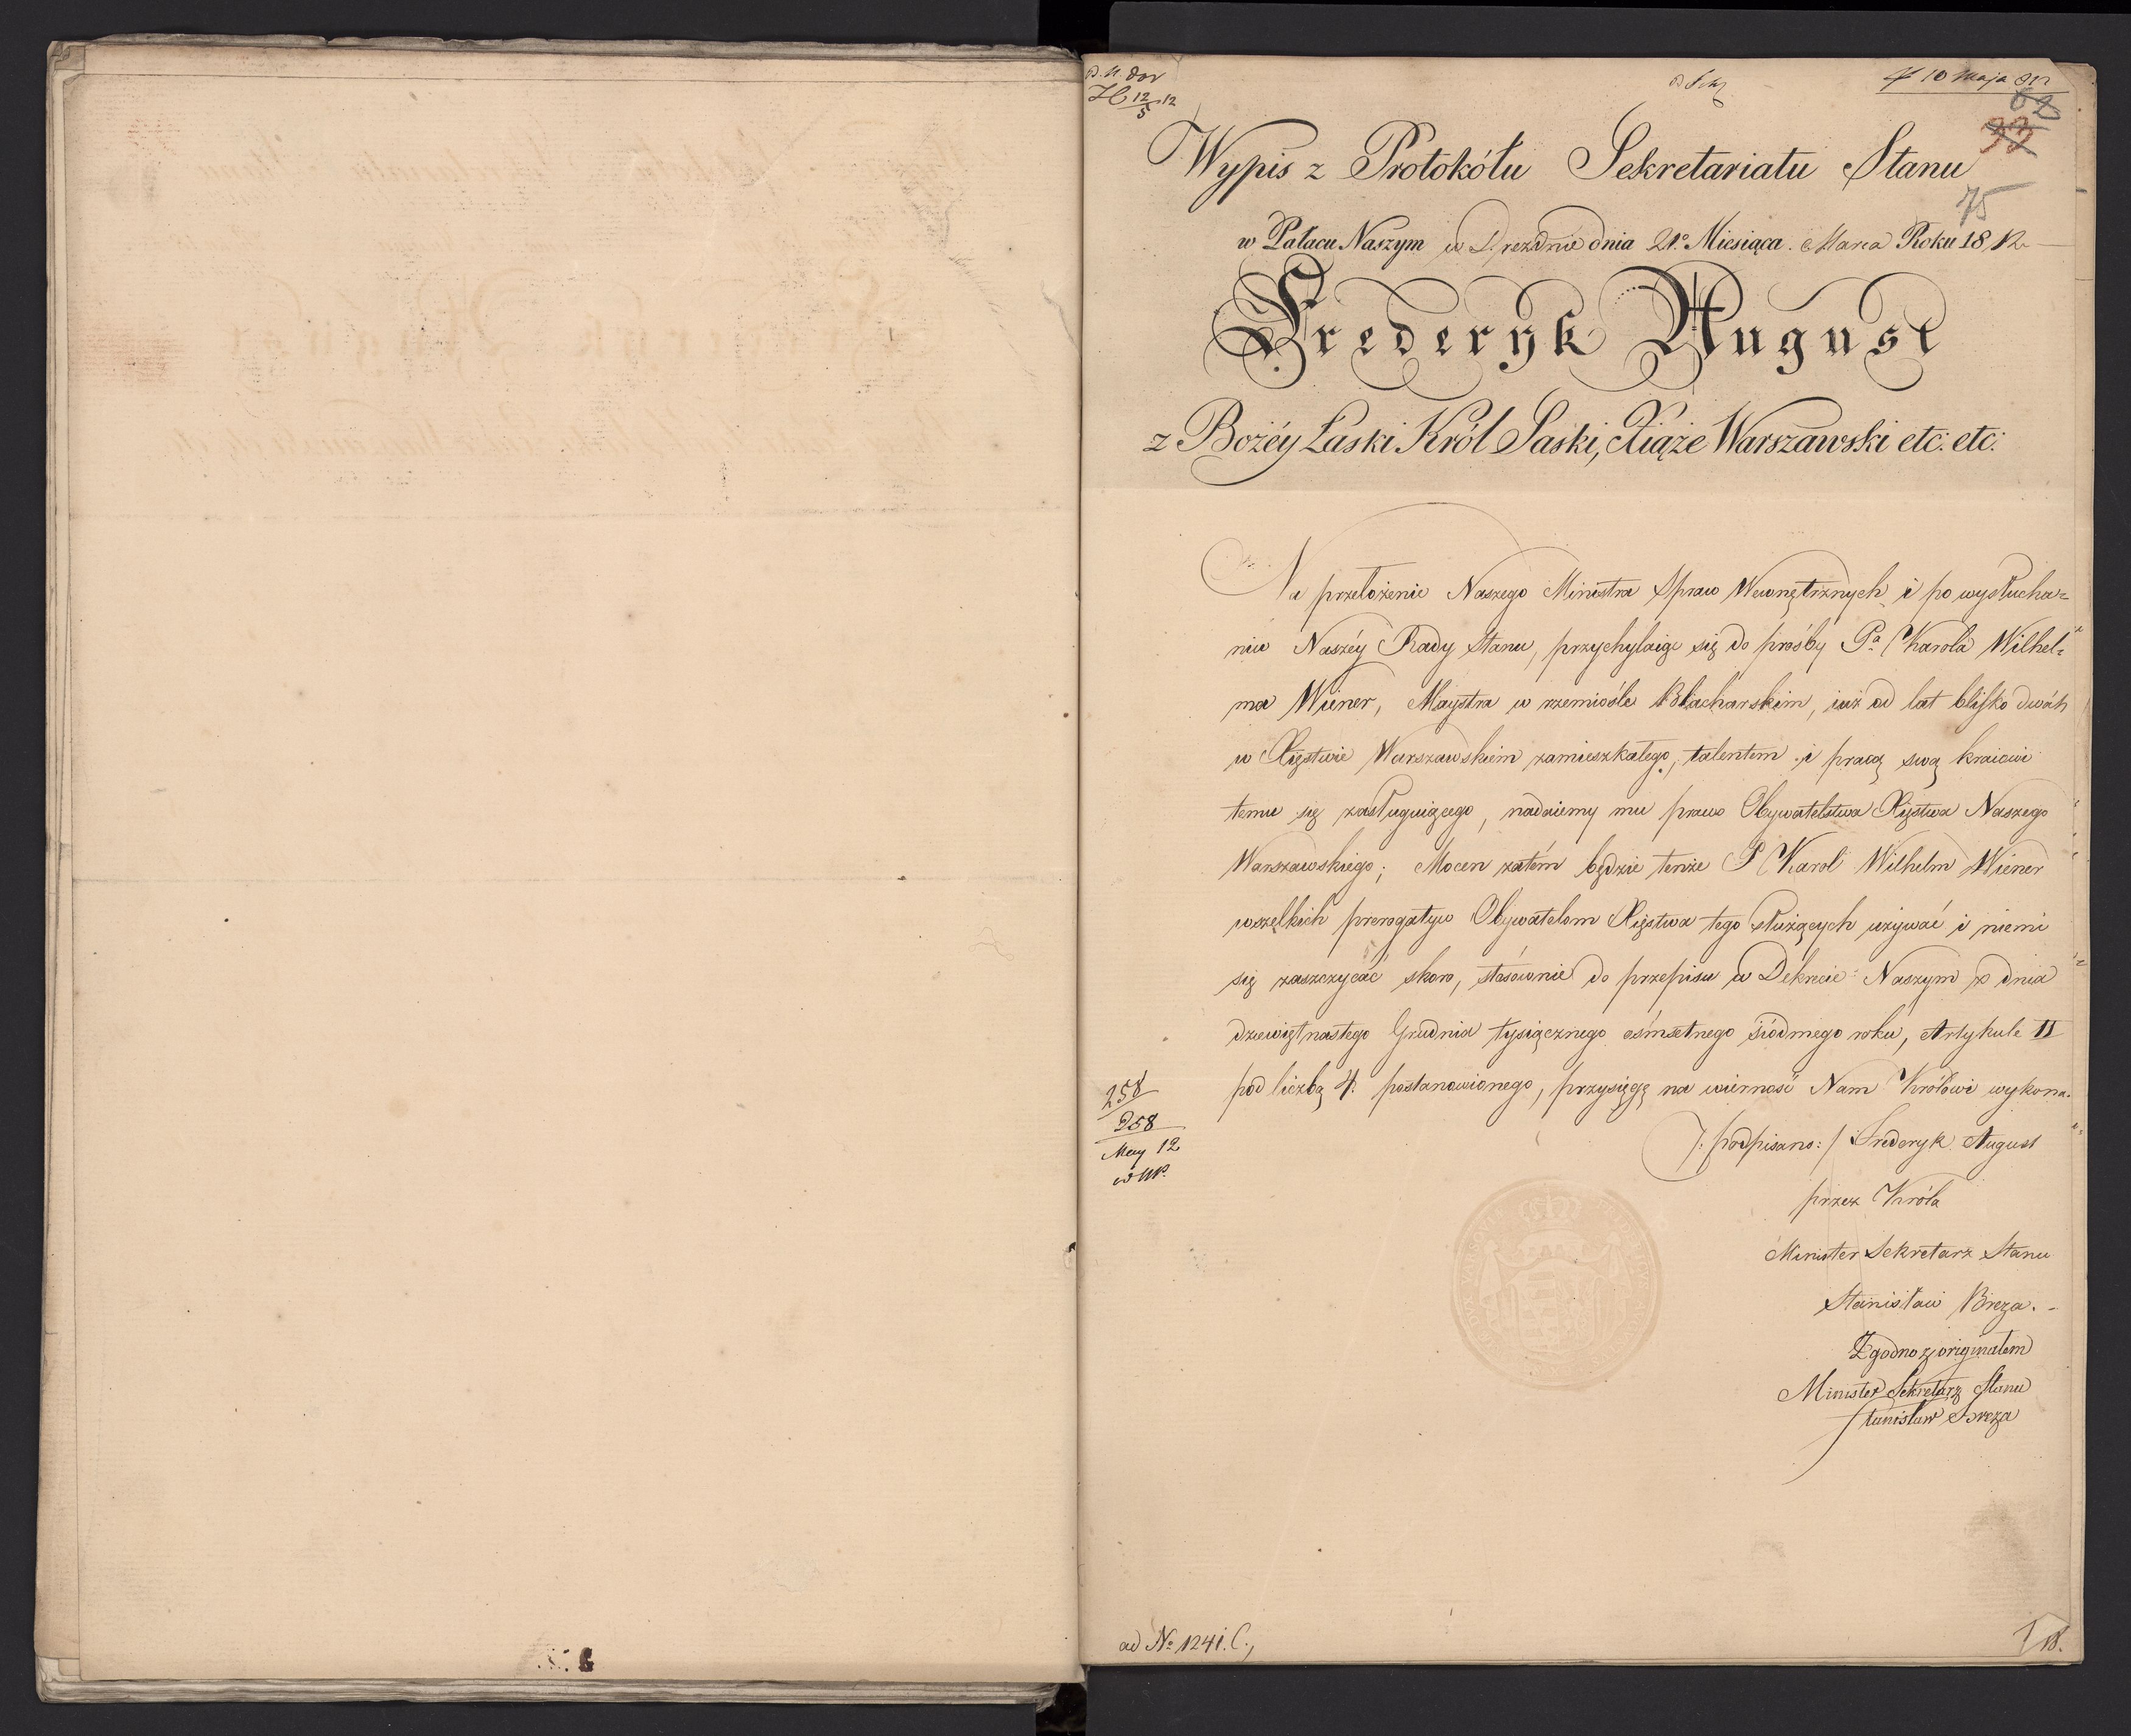 10 Maja 812
62
93
75
Wypis z Protokółu Sekretariatu Stanu
w Pałacu Naszym w Dreznie dnia 21º Miesiąca Marca Roku 1812
Frederyk August
z Bożéy Łaski Król Saski, Xiąże Warszawski etc: etc:
Na przełożenie Naszego Ministra Spraw Wewnętrznych i po wysłucha=
niu Naszéy Rady Stanu, przychylaiąc się do prośby Pª Karola Wilhel=
ma Wiener, Maystra w rzemiośle Blacharskim, iuż od lat blisko dwóch
w Xięstwie Warszawskiem zamieszkałego, talentem i pracą swą kraiowi
temu się zasługuiącego, nadaiemy mu prawo Obywatelstwa Xięstwa Naszego
Warszawskiego; Mocen zatém będzie tenże P Karol Wilhelm Wiener
wszelkich prerogatyw Obywatelom Xięstwa tego służących używać i niemi
się zaszczycać skoro, stósownie do przepisu w Dekrecie Naszym z dnia
dziewiętnastego Grudnia tysiącznego óśmsetnego siódmego roku, Artykule II
pod liczbą 4. postanowionego, przysięgę na wierność Nam Królowi wykona.
/: podpisano: / Frederyk August
przez Króla
Minister Sekretarz Stanu
Stanisław Breza.
Zgodno z originałem
Minister Sekretarz Stanu
Stanisław Breza
258
258
May 12
ad Nº 1241. C.,